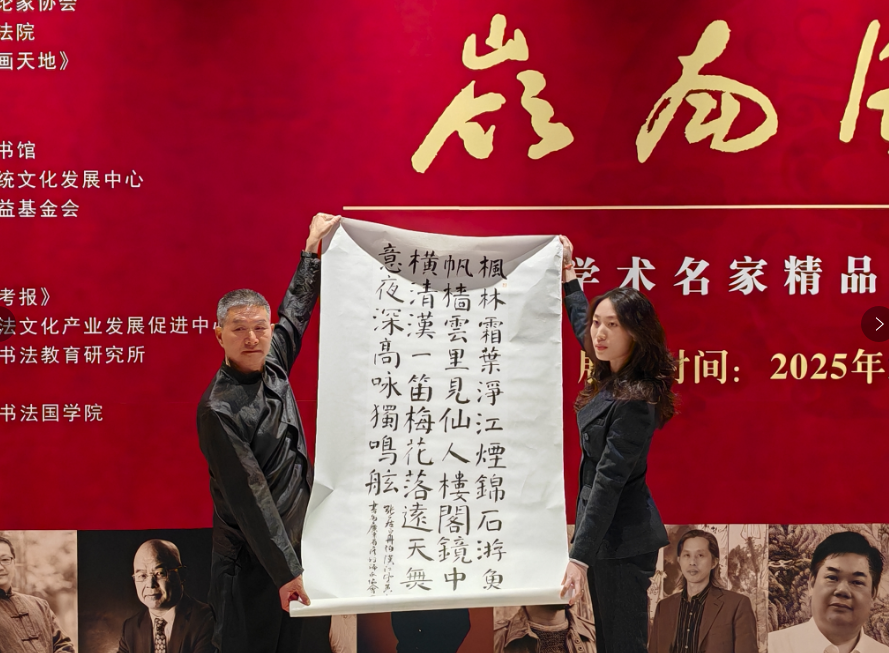 论家协会
法院
画天地》
书馆
统文化发展中心
益基金会
考报》
法文化产业发展促进中
书法教育研究所
书法国学院
嶺南
学术名家精品
时间：2025年
楓林霜葉淨江煙錦石游魚
帆檣雲里見仙人樓閣鏡中
橫清漢一笛梅花落遠天無
意夜深高咏獨鳴舷
張居正舟泊漢江望黃